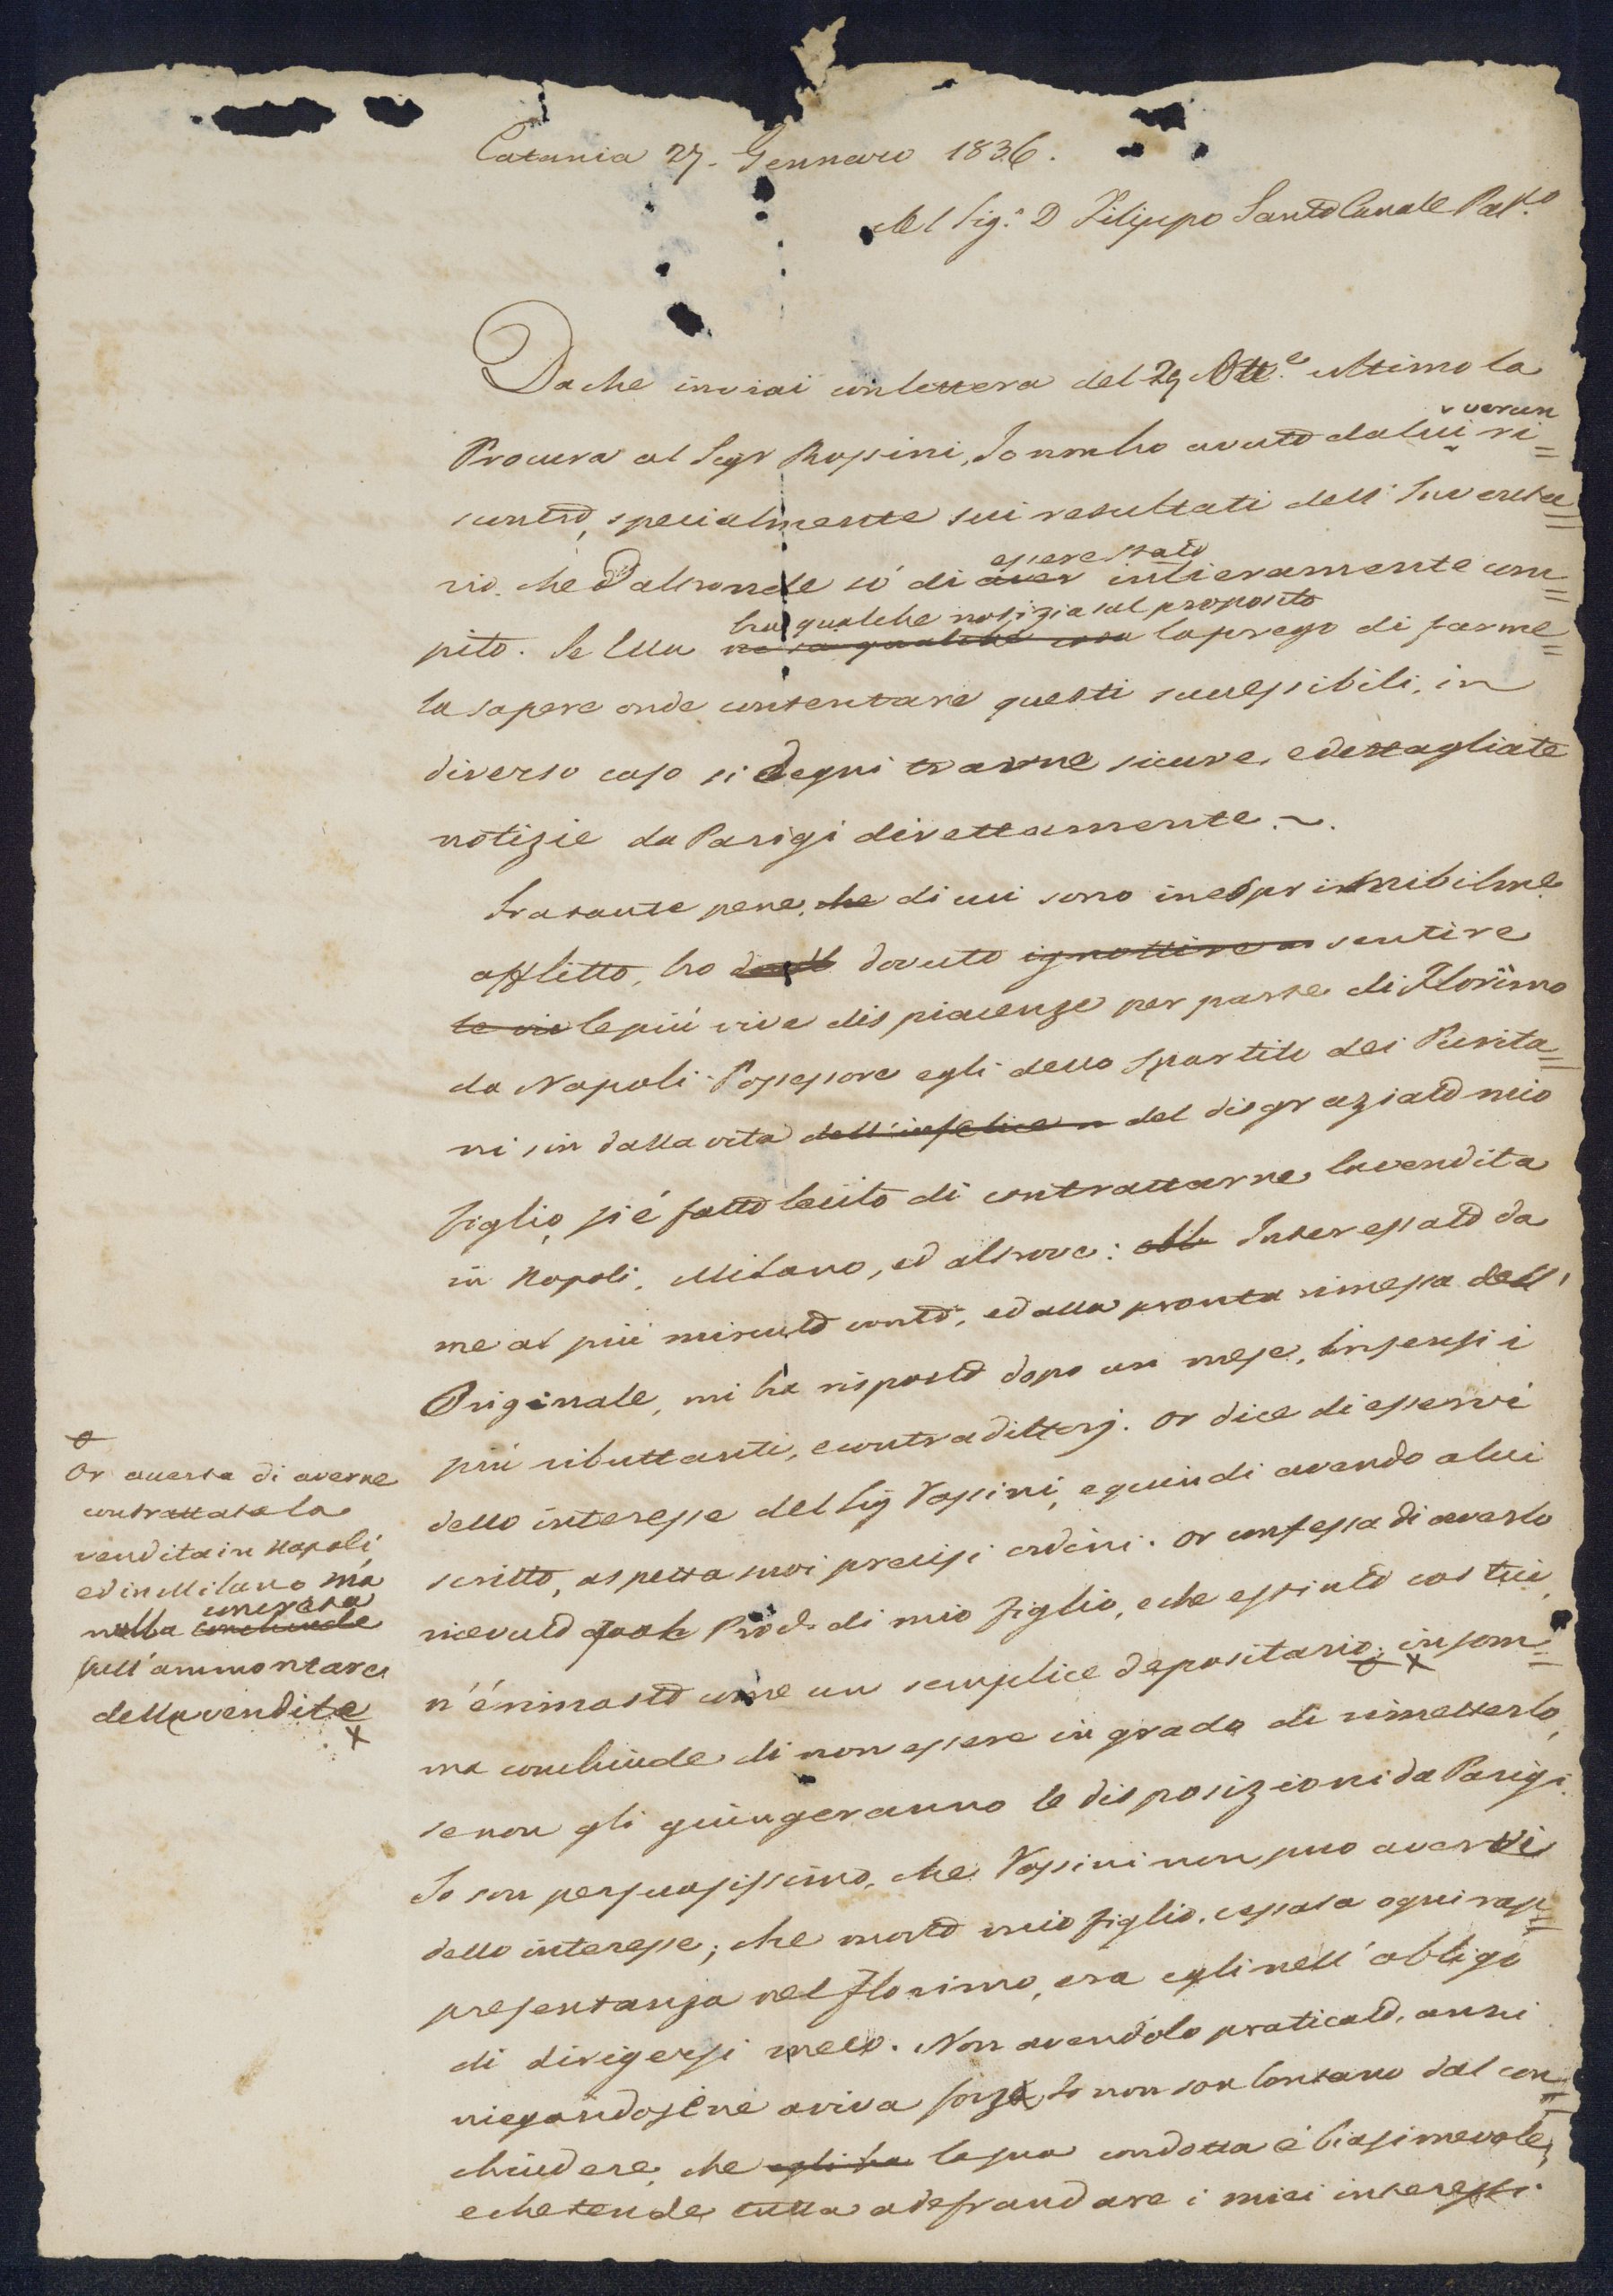 Catania 27. Gennaro 1836.
Al Sig.r D Filippo Santo Canale Pal.o
Dache inviai conlettera del 29 Ott.e ultimo la
Procura al Sigr Rossini, Io nonho avuto dalui verun ri=
scontro, specialmente sui resultati dell' Inventa=
rio, che Daltronde sò di aver essere stato intieramente com=
pito. Se Ella ne sa qualche cosa ha qualche notizia sul proposito laprego di farme=
lo sapere onde contentare questi successibili, in
diverso caso si degni trarne sicure, edettagliate
notizie da Parigi direttamente. ~.
Fratante pene, che di cui sono inesprimibilme
afflitto, ho dovuto sentire
le vi lepiù vive dispiacenze per parte di Florimo
da Napoli. Possessore egli dello Spartito dei Purita=
ni sin dalla vita dell'infelice del disgraziato mio
figlio, si è fatto lecito di contrattarne lavendita
in Napoli, Milano, ed altrove: Interessato da
me al più minuto conto, ed alla pronta rimessa dell'
Originale, mi ha risposto dopo un mese, linsensi i
più ributtanti, econtradittorj. Or dice di esservi
dello interesse del Sig Rossini, equindi avendo alui
scritto, aspetta suoi precisi ordini. Or confessa di averlo
ricevuto qual Prod. di mio figlio, eche estinto costui,
n'è rimasto come un semplice depositario; insom=
ma conchiude di non essere in grado di rimetterlo,
senon gli giungeranno le disposizioni da Parigi.
Io son persuasissimo, che Rossini non puo avervi
dello interesse; che morto mio figlio, cessata ogni rap=
presentanza nel Florimo, era egli nell'obligo
di dirigersi meco. Non avendolo praticato, anzi
niegandosene aviva forza, Io non son lontano dal con=
chiudere, che egli ha lasua condotta è biasimevole,
echetende tutta adefraudare i miei interessi.
Or accerta di averne
contrattata la
vendita in Napoli,
ed in Milano ma
nulla conchiude
sull'ammontare
della vendita